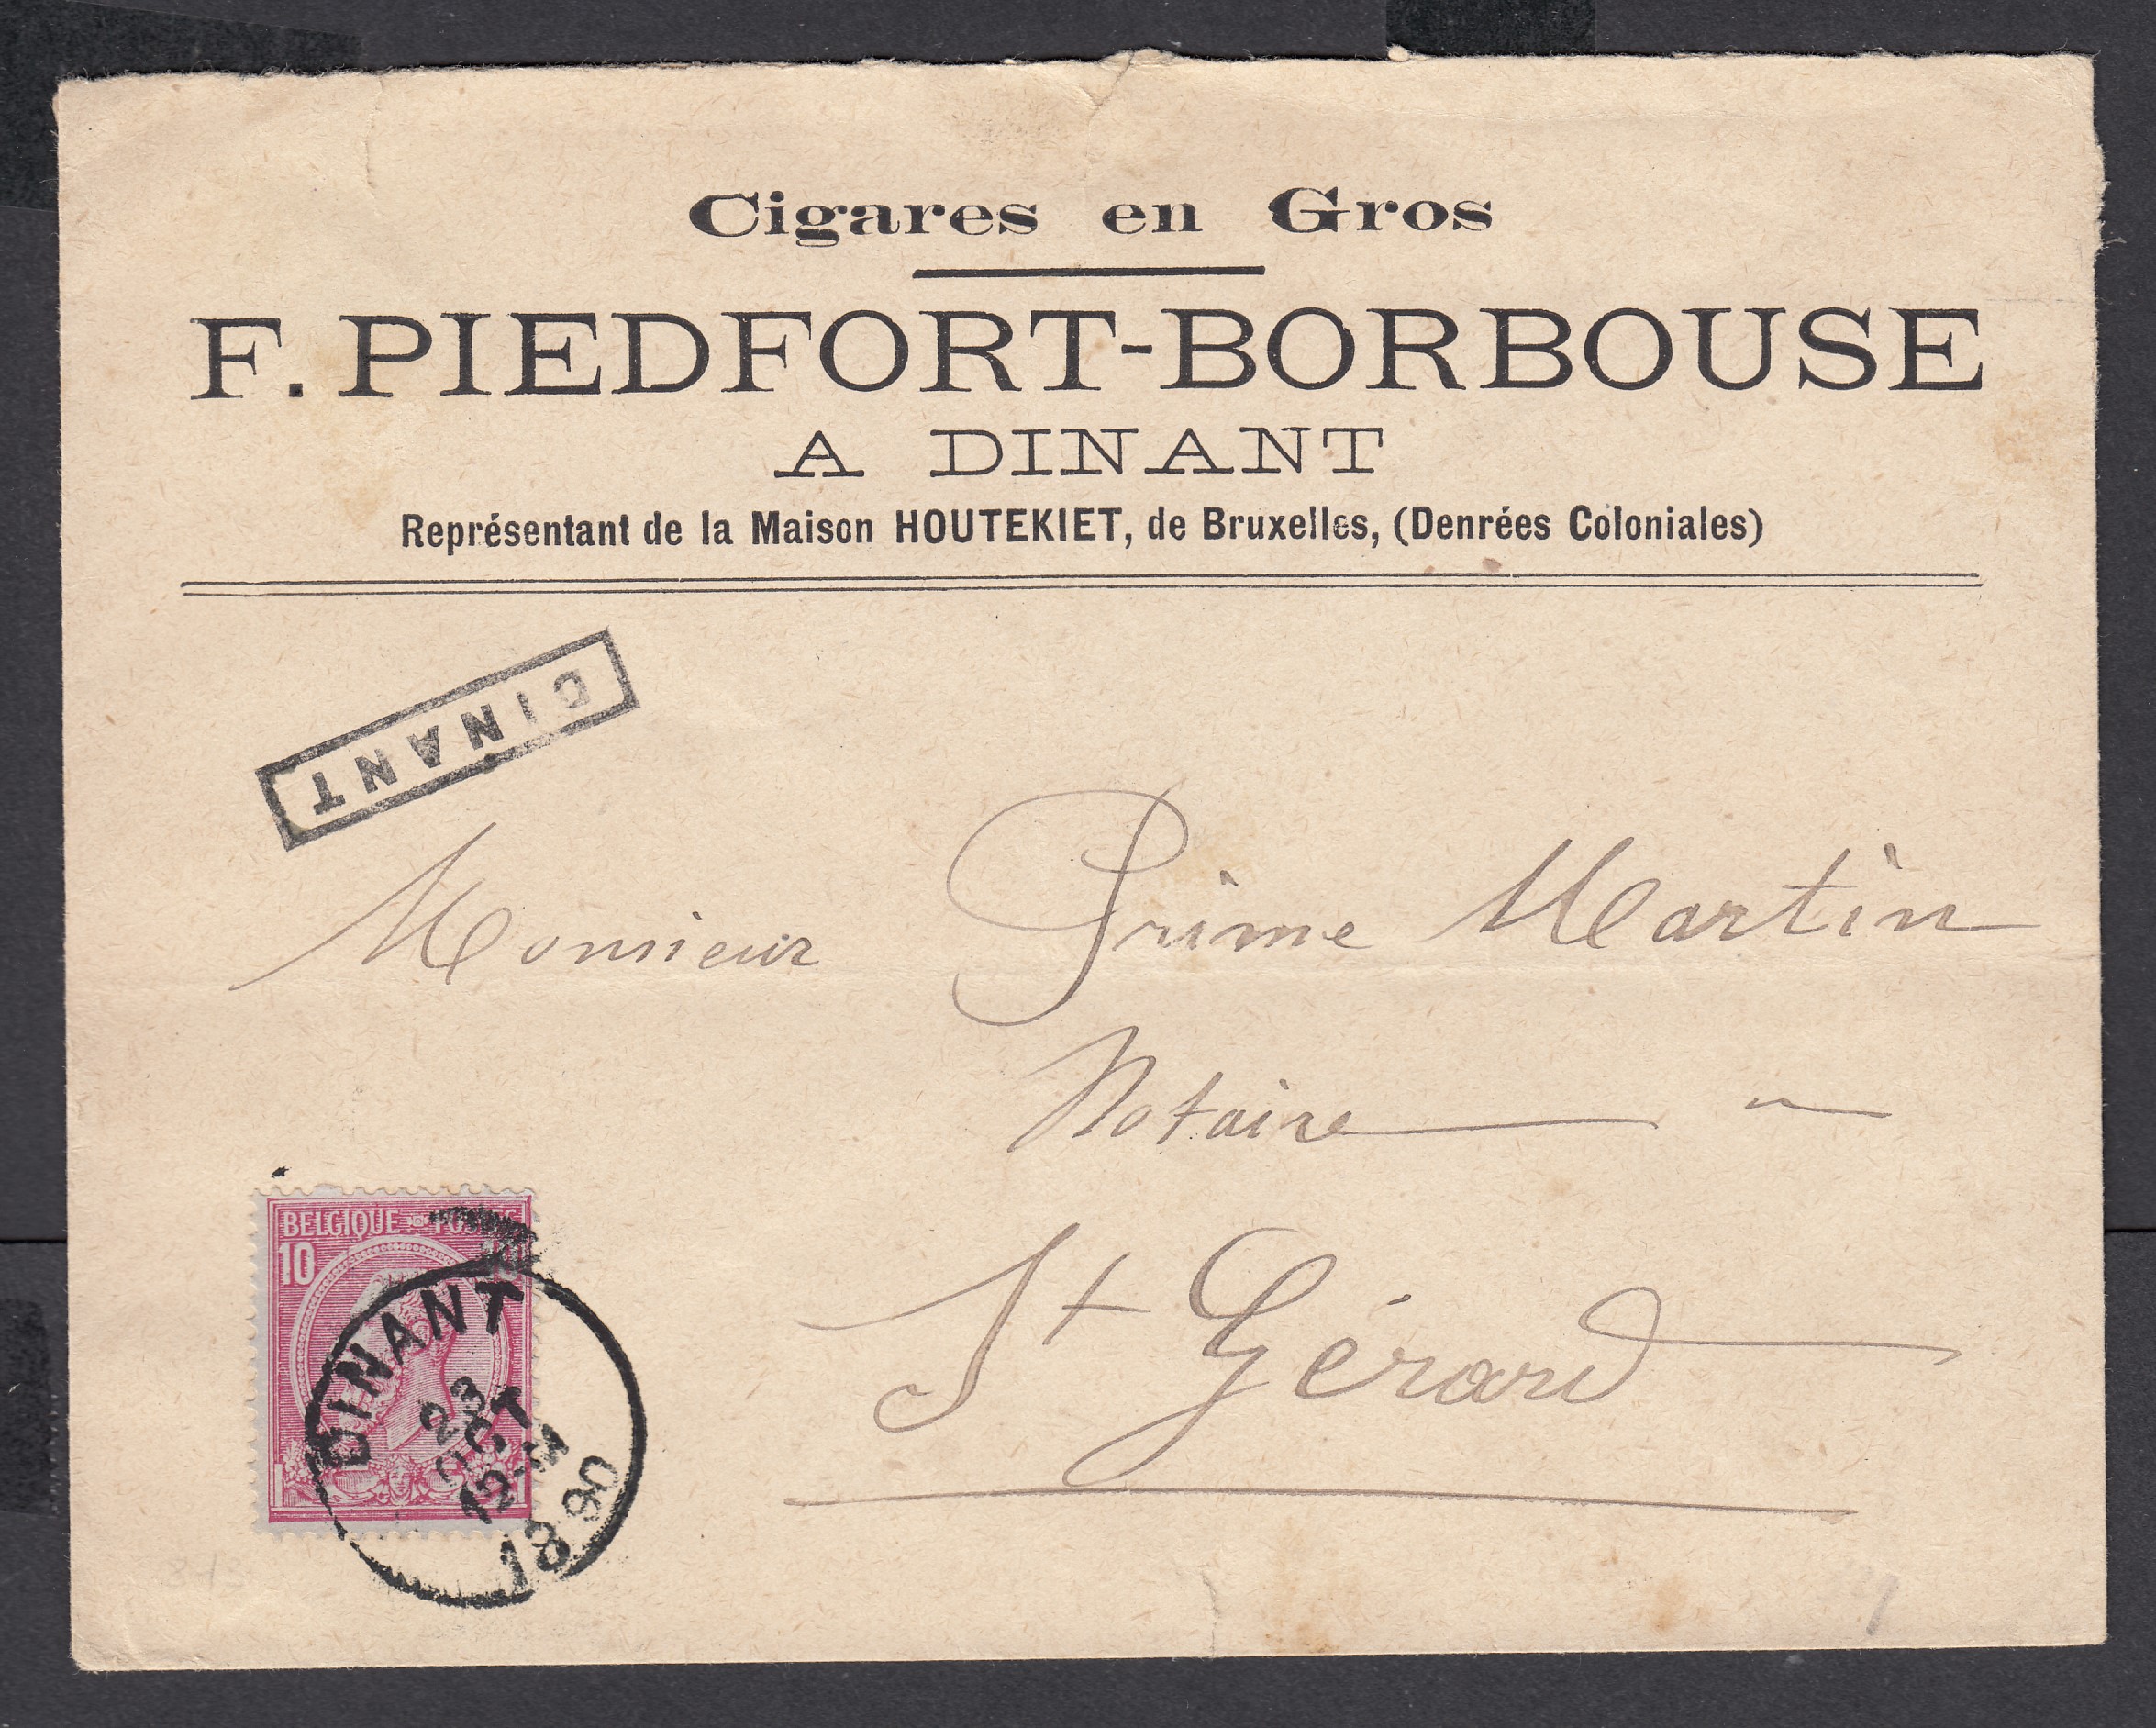 Cigares en Gros
F. PIEDFORT-BORBOUSE
A DINANT
Représentant de la Maison HOUTEKIET, de Bruxelles, (Denrées Coloniales)
DINANT
Monsieur Prime Martin
Notaire
St Gérard
BELGIQUE POSTES
10 10
DINANT
23
OCT
12-M
1890